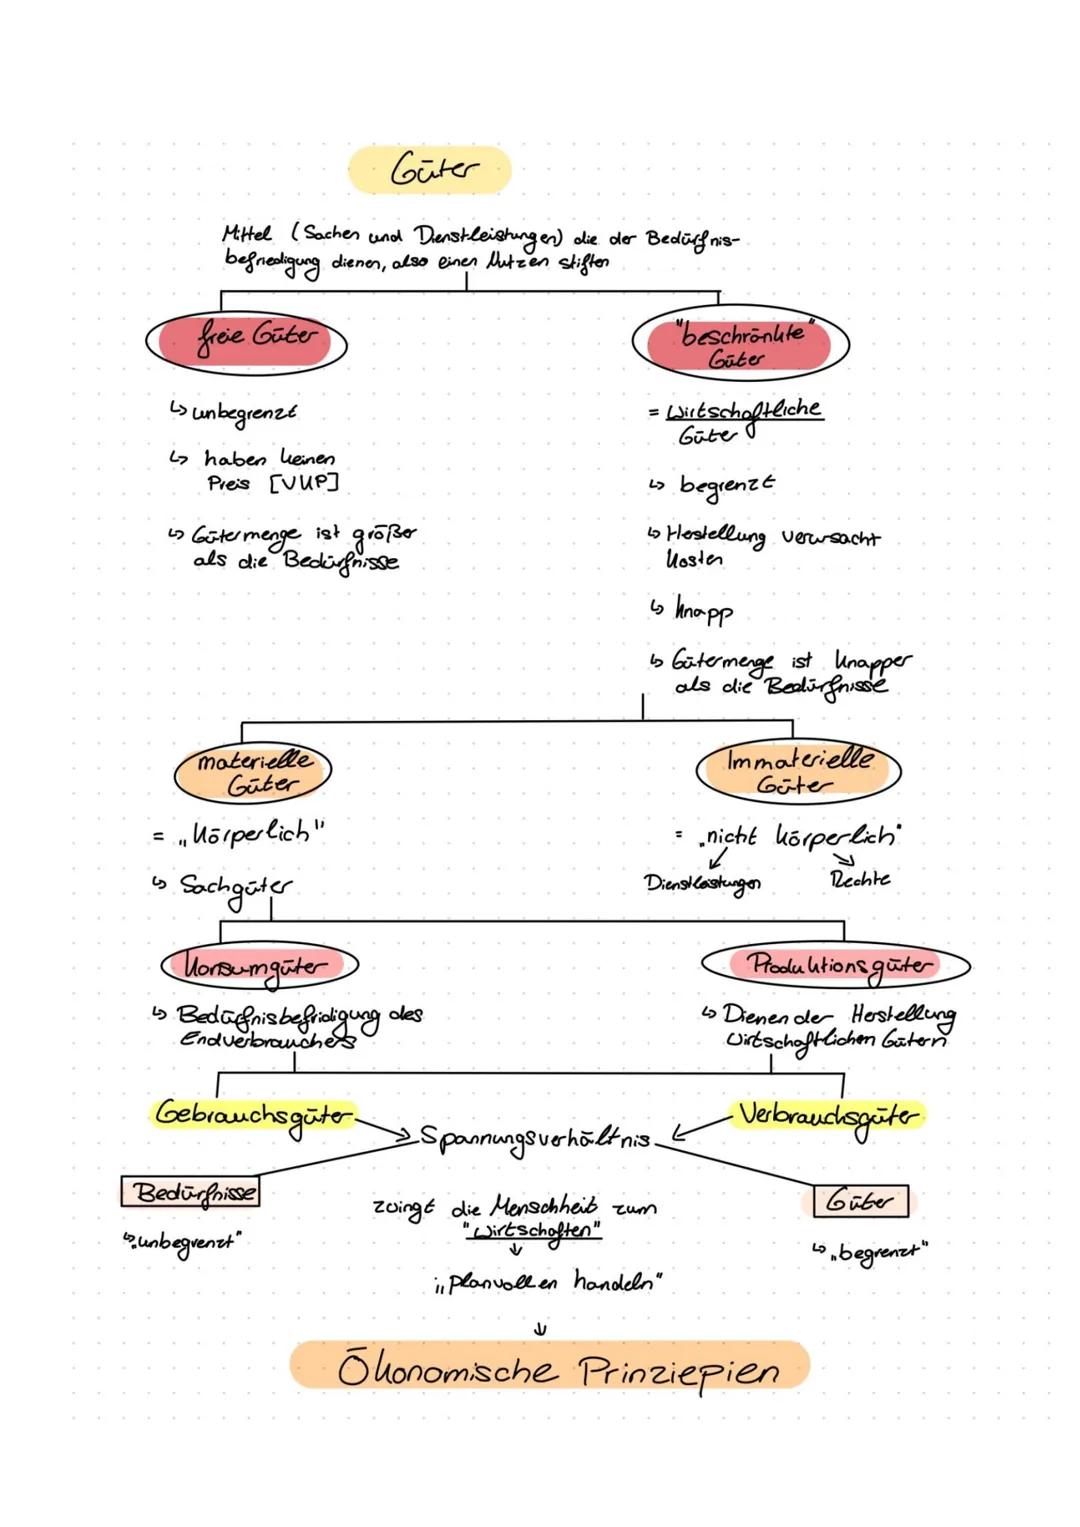 Güter
Mittel (Sachen und Dienstleistungen) die der Bedürfnis-
befriedigung dienen, also einen Nutzen stiften
freie Güter
"beschränkte"
Güter
↳ unbegrenzt
↳ haben keinen
Preis [VUP]
↳ Gütermenge ist größer
als die Bedürfnisse
= Wirtschaftliche
Güter
↳ begrenzt
↳ Herstellung verursacht
Kosten
↳ knapp
↳ Gütermenge ist knapper
als die Bedürfnisse
materielle
Güter
Immaterielle
Güter
= „körperlich"
↳ Sachgüter
= „nicht körperlich"
Dienstleistungen
Rechte
Konsumgüter
Produktionsgüter
↳ Bedürfnisbefridigung des
Endverbrauchers
↳ Dienen der Herstellung
wirtschaftlichen Gütern
Gebrauchsgüter
Verbrauchsgüter
Spannungsverhältnis
Bedürfnisse
Güter
↳ „unbegrenzt"
zwingt die Menschheit zum
"wirtschaften"
↳ „begrenzt"
„planvollen handeln"
Ökonomische Prinziepien